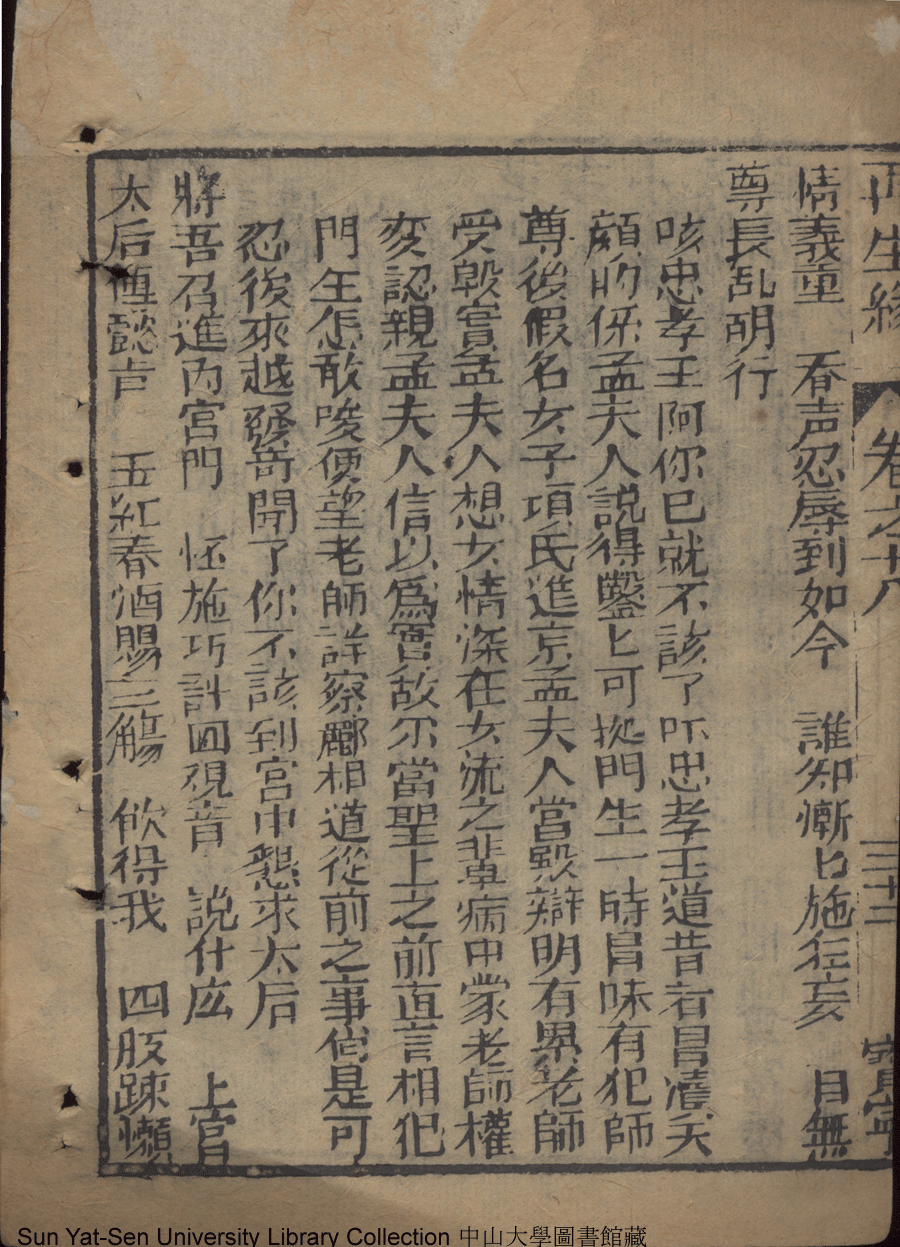 再生緣 卷之十八 三十三 寶寧
情義重 吞声忍辱到如今 誰知慚日施狂妄 目無
尊長乱胡行
咳忠孝王阿你已就不該了吓忠孝王道昔者冒瀆天
顔的係孟夫人説得鑿匕可挽門生一時昌味有犯師
尊後假名女子項氏進京孟夫人當毀辯明有累老師
受毀實孟夫人想女情深在女流之輩病中蒙老師權
変認親孟夫人信以爲實故尔當聖上之前直言相犯
門生怎敢唆使望老師詳察酈相道從前之事倘是可
忍後來越發奇聞了你不該到宮中懇求太后
將吾召進内宮門 怪施巧計囬視音 説什庅 上官
太后傳懿㫖 玉紅春酒賜三觴 飲得我 四肢踈懶
Sun Yat-Sen University Library Collection 中山大學圖書館藏